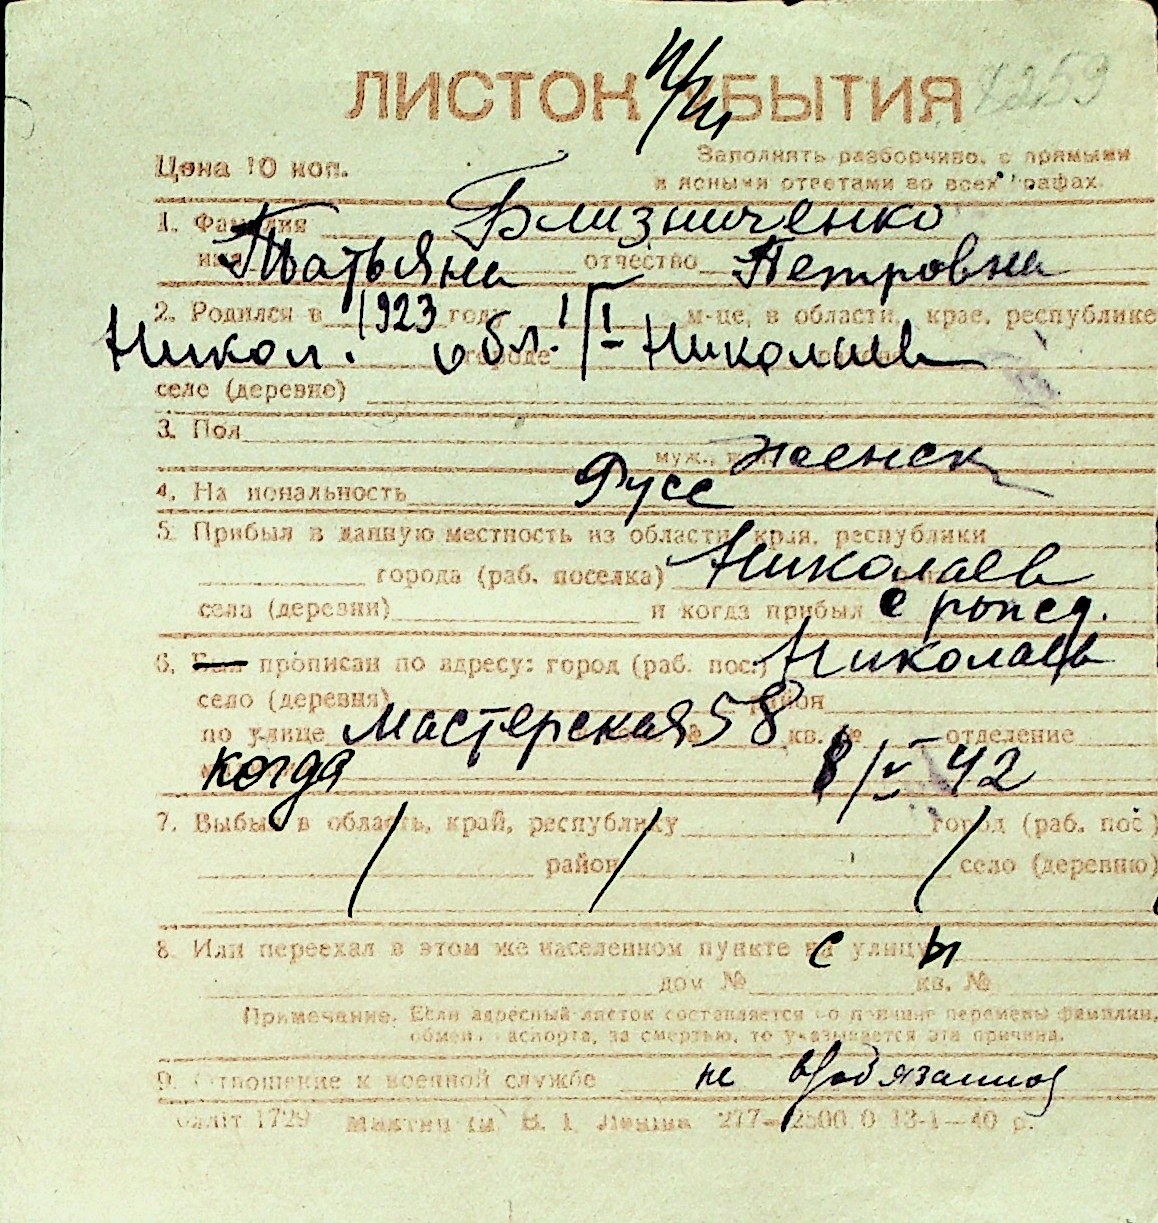 ЛИСТОК УБЫТИЯ 7259
Цена 10 коп. Заполнять разборчиво, с прямыми
и ясными ответами во всех графах.
1. Фамилия Близниченко
имя Татьяна отчество Петровна
2. Родился в 1923 году 1/I м-це, в области, крае, республике
Никол. обл. городе Николаев
селе (деревне)
3. Пол женск
муж., жен.
4. Национальность Русс
5. Прибыл в данную местность из области, края, республики
города (раб. поселка) Николаев
села (деревни) и когда прибыл с рожд.
6. Был прописан по адресу: город (раб. пос.) Николаев
село (деревня) район
по улице Мастерская 58 кв. № отделение
когда 8/V 42
7. Выбыл в область, край, республику город (раб. пос.)
район село (деревню)
8. Или переехал в этом же населенном пункте на улицу
дом № кв. №
Примечание. Если адресный листок составляется по причине перемены фамилии,
обмена паспорта, за смертью, то указывается эта причина.
9. Отношение к военной службе не
1729 277—2500.0 13-1—40 р.